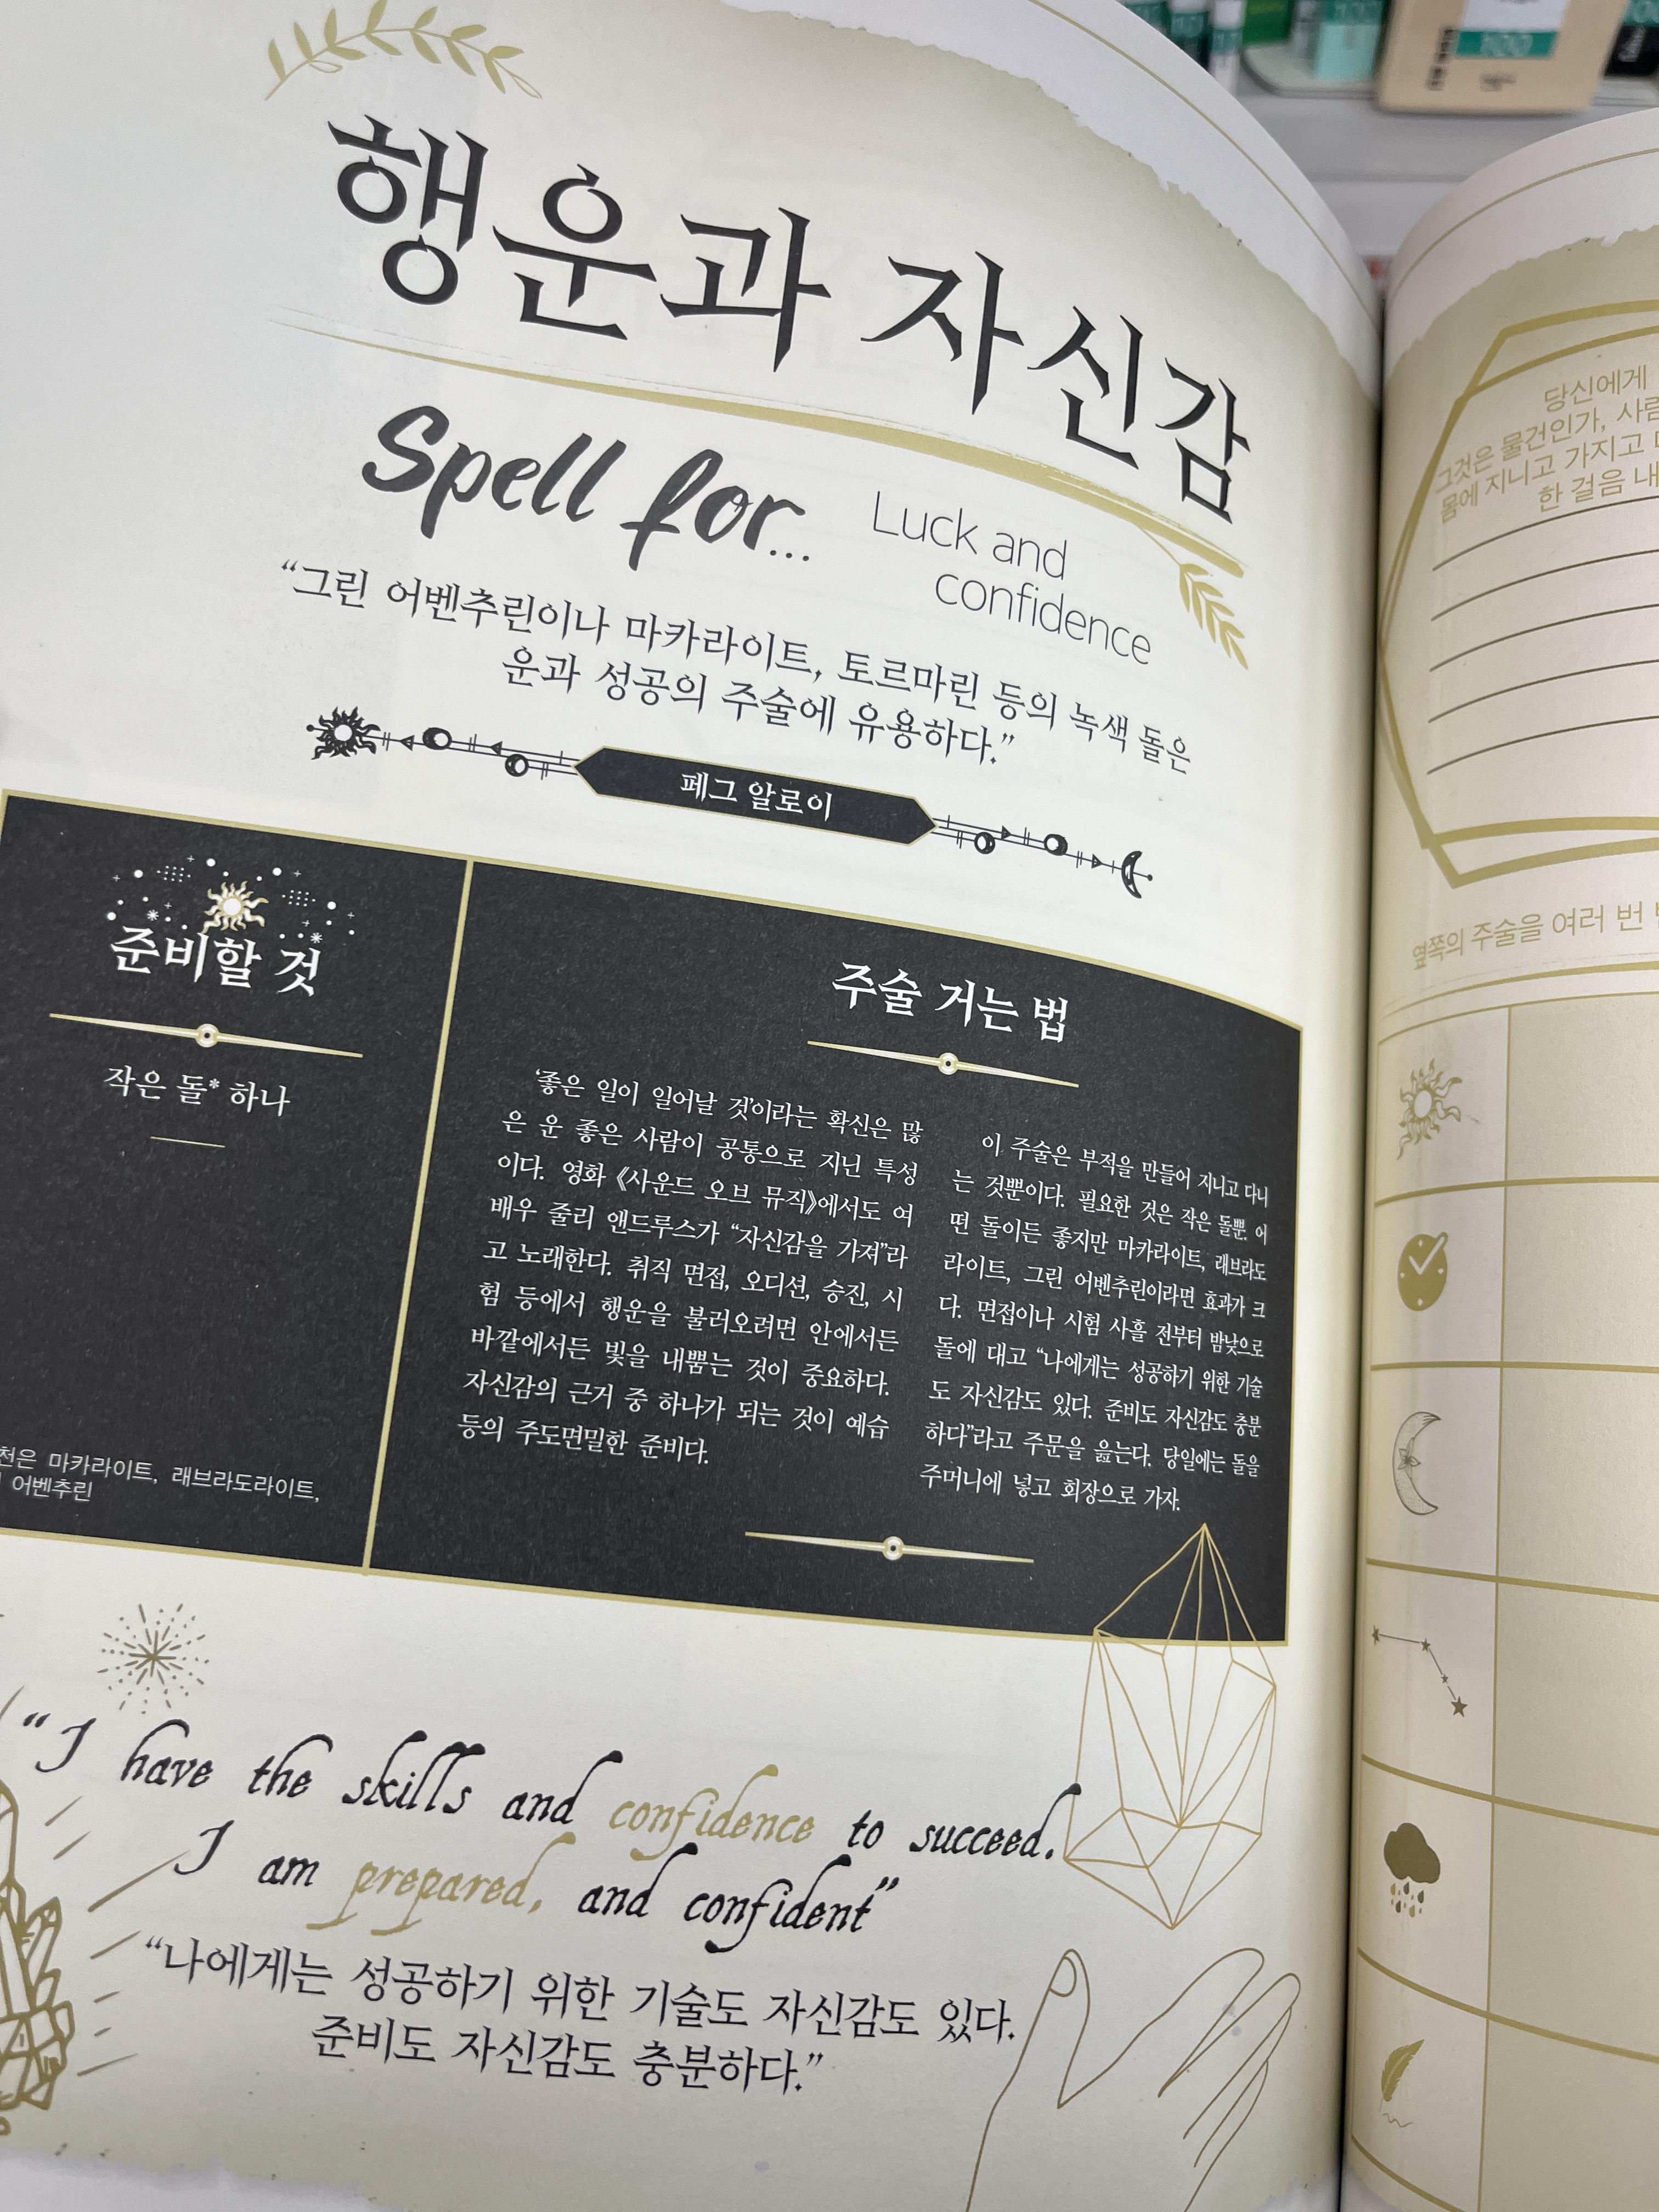 행운과 자신감
Spell for...
Luck and
confidence
“그린 어벤추린이나 마카라이트, 토르마린 등의 녹색 돌은
운과 성공의 주술에 유용하다.”
페그 알로이
준비할 것
작은 돌* 하나
천은 마카라이트, 래브라도라이트,
어벤추린
주술 거는 법
‘좋은 일이 일어날 것’이라는 확신은 많
은 운 좋은 사람이 공통으로 지닌 특성
이다. 영화 《사운드 오브 뮤직》에서도 여
배우 줄리 앤드루스가 “자신감을 가져”라
고 노래한다. 취직 면접, 오디션, 승진, 시
험 등에서 행운을 불러오려면 안에서든
바깥에서든 빛을 내뿜는 것이 중요하다.
자신감의 근거 중 하나가 되는 것이 예습
등의 주도면밀한 준비다.
이 주술은 부적을 만들어 지니고 다니
는 것뿐이다. 필요한 것은 작은 돌뿐. 어
떤 돌이든 좋지만 마카라이트, 래브라도
라이트, 그린 어벤추린이라면 효과가 크
다. 면접이나 시험 사흘 전부터 밤낮으로
돌에 대고 “나에게는 성공하기 위한 기술
도 자신감도 있다. 준비도 자신감도 충분
하다”라고 주문을 읊는다. 당일에는 돌을
주머니에 넣고 회장으로 가자.
“I have the skills and confidence to succeed.
I am prepared, and confident”
“나에게는 성공하기 위한 기술도 자신감도 있다.
준비도 자신감도 충분하다.”
당신에게
그것은 물건인가, 사람
몸에 지니고 가지고
한 걸음 내
옆쪽의 주술을 여러 번
100